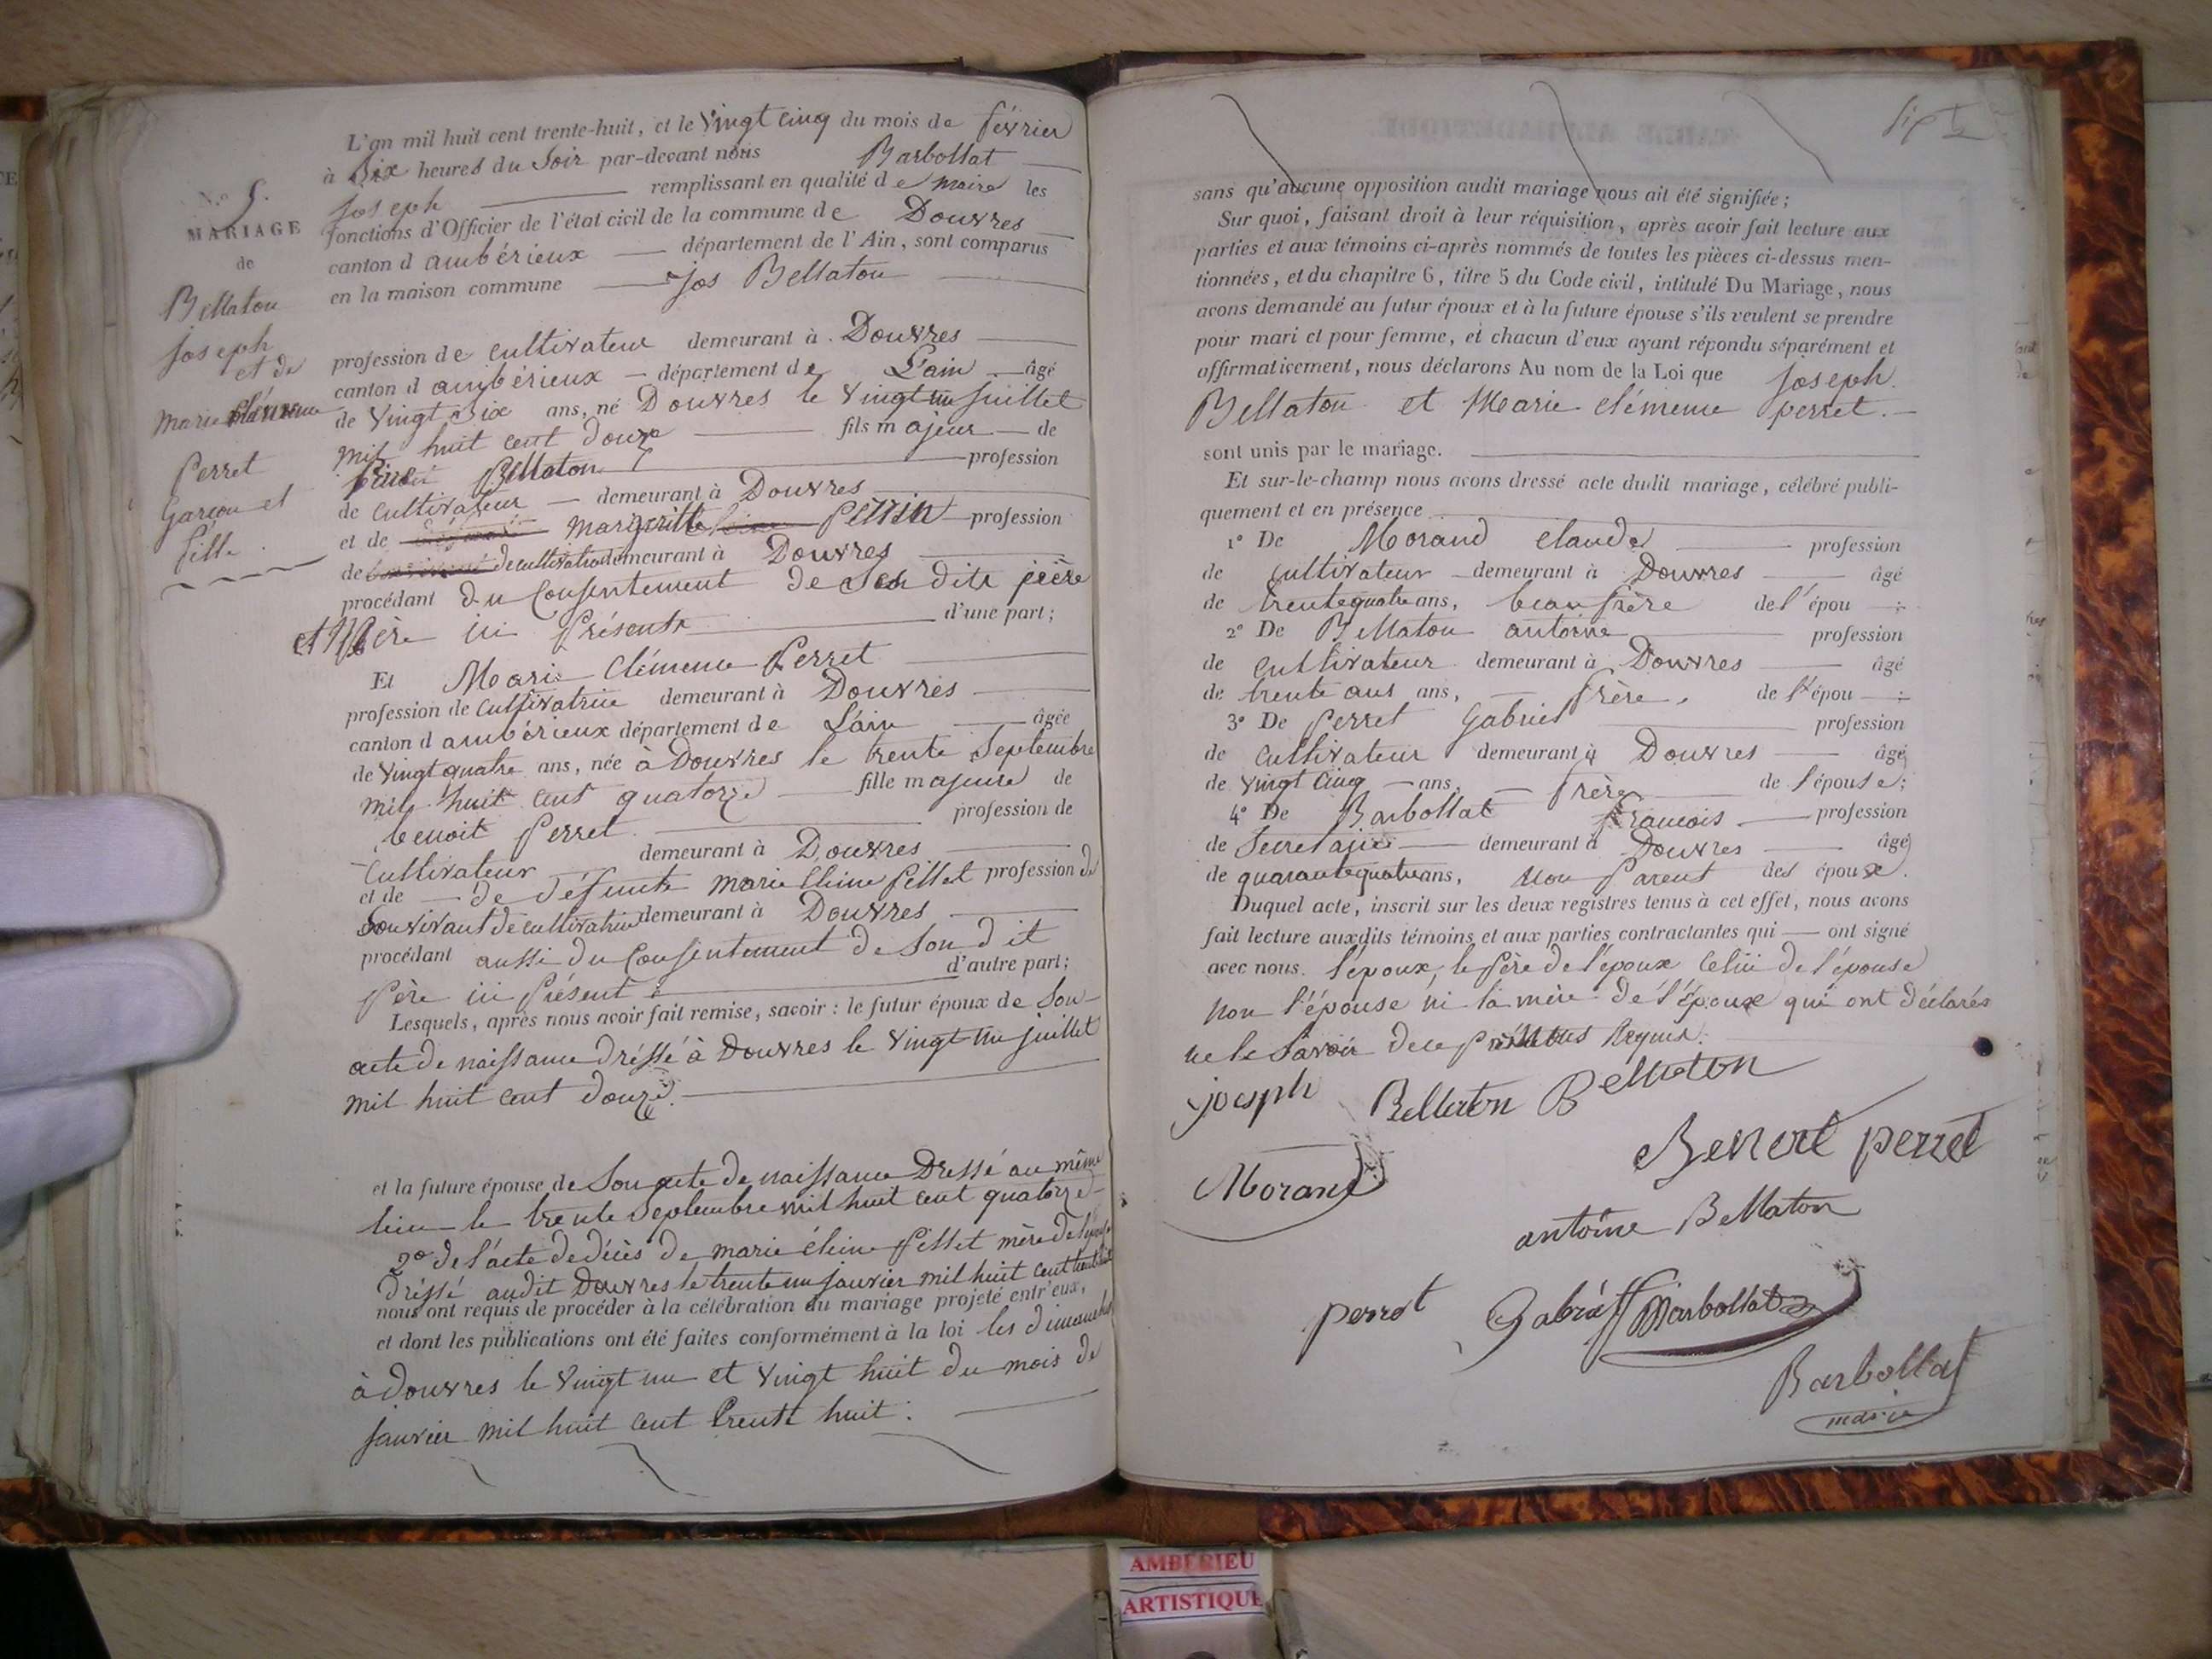 N.o 5.
MARIAGE
de
Bellaton
joseph
et de
marie clémence
Perret
Garçon et
fille.
L'an mil huit cent trente-huit, et le vingt cinq du mois de février
à six heures du soir par-devant nous Barbollat
joseph remplissant en qualité de maire les
fonctions d'Officier de l'état civil de la commune de Douvres
canton d ambérieux département de l'Ain, sont comparus
en la maison commune jos Bellaton
profession de cultivateur demeurant à Douvres
canton d ambérieux département de L'ain âgé
de vingt six ans, né Douvres le vingt un juillet
mil huit cent douze fils majeur de
Bellaton profession
de cultivateur demeurant à Douvres
et de margueritte perrin profession
de de cultivatrice demeurant à Douvres
procédant du Consentement de ses dits père
et Mère ici présents d'une part;
Et Marie Clémence Perret
profession de cultivatrice demeurant à Douvres
canton d ambérieux département de L'ain âgée
de vingt quatre ans, née à Douvres le trente septembre
mil huit cent quatorze fille majeure de
benoit Perret profession de
cultivateur demeurant à Douvres
et de de défunte marie cleine pillet profession de
son vivant de cultivatrice demeurant à Douvres
procédant aussi du Consentement de son dit
Père ici présent d'autre part;
Lesquels, après nous avoir fait remise, savoir: le futur époux de son
acte de naissance dréssé à Douvres le vingt un juillet
mil huit cent douze.
et la future épouse de son acte de naissance Dressé au même
lieu le trente septembre mil huit cent quatorze
2o de l'acte de décès de marie cleine pillet mère de l'épouse
dréssé audit Douvres le trente un janvier mil huit cent
nous ont requis de procéder à la célébration du mariage projeté entr'eux,
et dont les publications ont été faites conformément à la loi les dimanches
à douvres le vingt un et vingt huit du mois de
janvier mil huit cent trente huit.
sept
sans qu'aucune opposition audit mariage nous ait été signifiée;
Sur quoi, faisant droit à leur réquisition, après avoir fait lecture aux
parties et aux témoins ci-après nommés de toutes les pièces ci-dessus men-
tionnées, et du chapitre 6, titre 5 du Code civil, intitulé Du Mariage, nous
avons demandé au futur époux et à la future épouse s'ils veulent se prendre
pour mari et pour femme, et chacun d'eux ayant répondu séparément et
affirmativement, nous déclarons Au nom de la Loi que joseph
Bellaton et Marie clémence perret.
sont unis par le mariage.
Et sur-le-champ nous avons dressé acte dudit mariage, célébré publi-
quement et en présence
1o De Morand claude profession
de cultivateur demeurant à Douvres âgé
de trente quatre ans, beau frère de l'épou ;
2o De Bellaton antoine profession
de cultivateur demeurant à Douvres âgé
de trente ans ans, frère, de l'épou ;
3o De Perret Gabriel profession
de cultivateur demeurant à Douvres âgé
de vingt cinq ans, frère de l'épouse;
4o De Barbollat francois profession
de Secretaire demeurant à Douvres âgé
de quarante quatre ans, non Parent des époux.
Duquel acte, inscrit sur les deux registres tenus à cet effet, nous avons
fait lecture auxdits témoins et aux parties contractantes qui ont signé
avec nous. l'époux, le père de l'époux celui de l'épouse
non l'épouse ni la mère de l'époux qui ont déclarés
ne le savoir de ce par nous Requis.
joesph Bellaton Bellaton
Benoit perret
Morand
antoine Bellaton
perret Gabriel Barbollat
Barbollat
maire
AMBERIEU
ARTISTIQUE